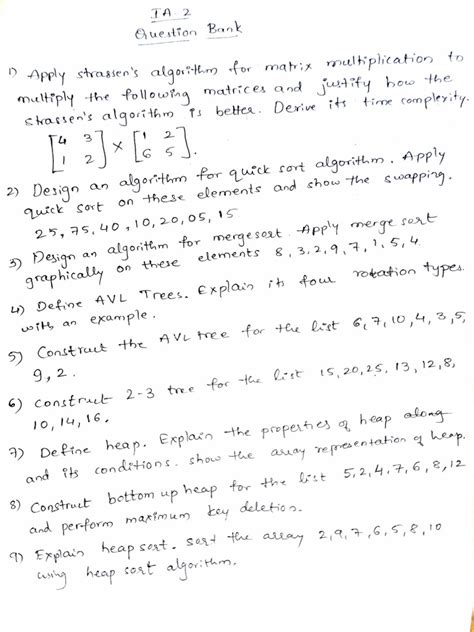 IA 2
Question Bank
1) Apply strassen's algorithm for matrix multiplication to
multiply the following matrices and justify how the
strassen's algorithm is better. Derive its time complexity.
[4 3 × [1 2
1 2] 6 5].
2) Design an algorithm for quick sort algorithm. Apply
quick sort on these elements and show the swapping.
25, 75, 40, 10, 20, 05, 15
3) Design an algorithm for mergesort. Apply merge sort
graphically on these elements 8, 3, 2, 9, 7, 1, 5, 4
4) Define AVL Trees. Explain its four rotation types.
with an example.
5) Construct the AVL tree for the list 6, 7, 10, 4, 3, 5,
9, 2.
6) Construct 2-3 tree for the list 15, 20, 25, 13, 12, 8,
10, 14, 16.
7) Define heap. Explain the properties of heap along
and its conditions. show the array representation of heap.
8) Construct bottom up heap for the list 5, 2, 4, 7, 6, 8, 12
and perform maximum key deletion.
9) Explain heapsort. sort the array 2, 9, 7, 6, 5, 8, 10
using heap sort algorithm.